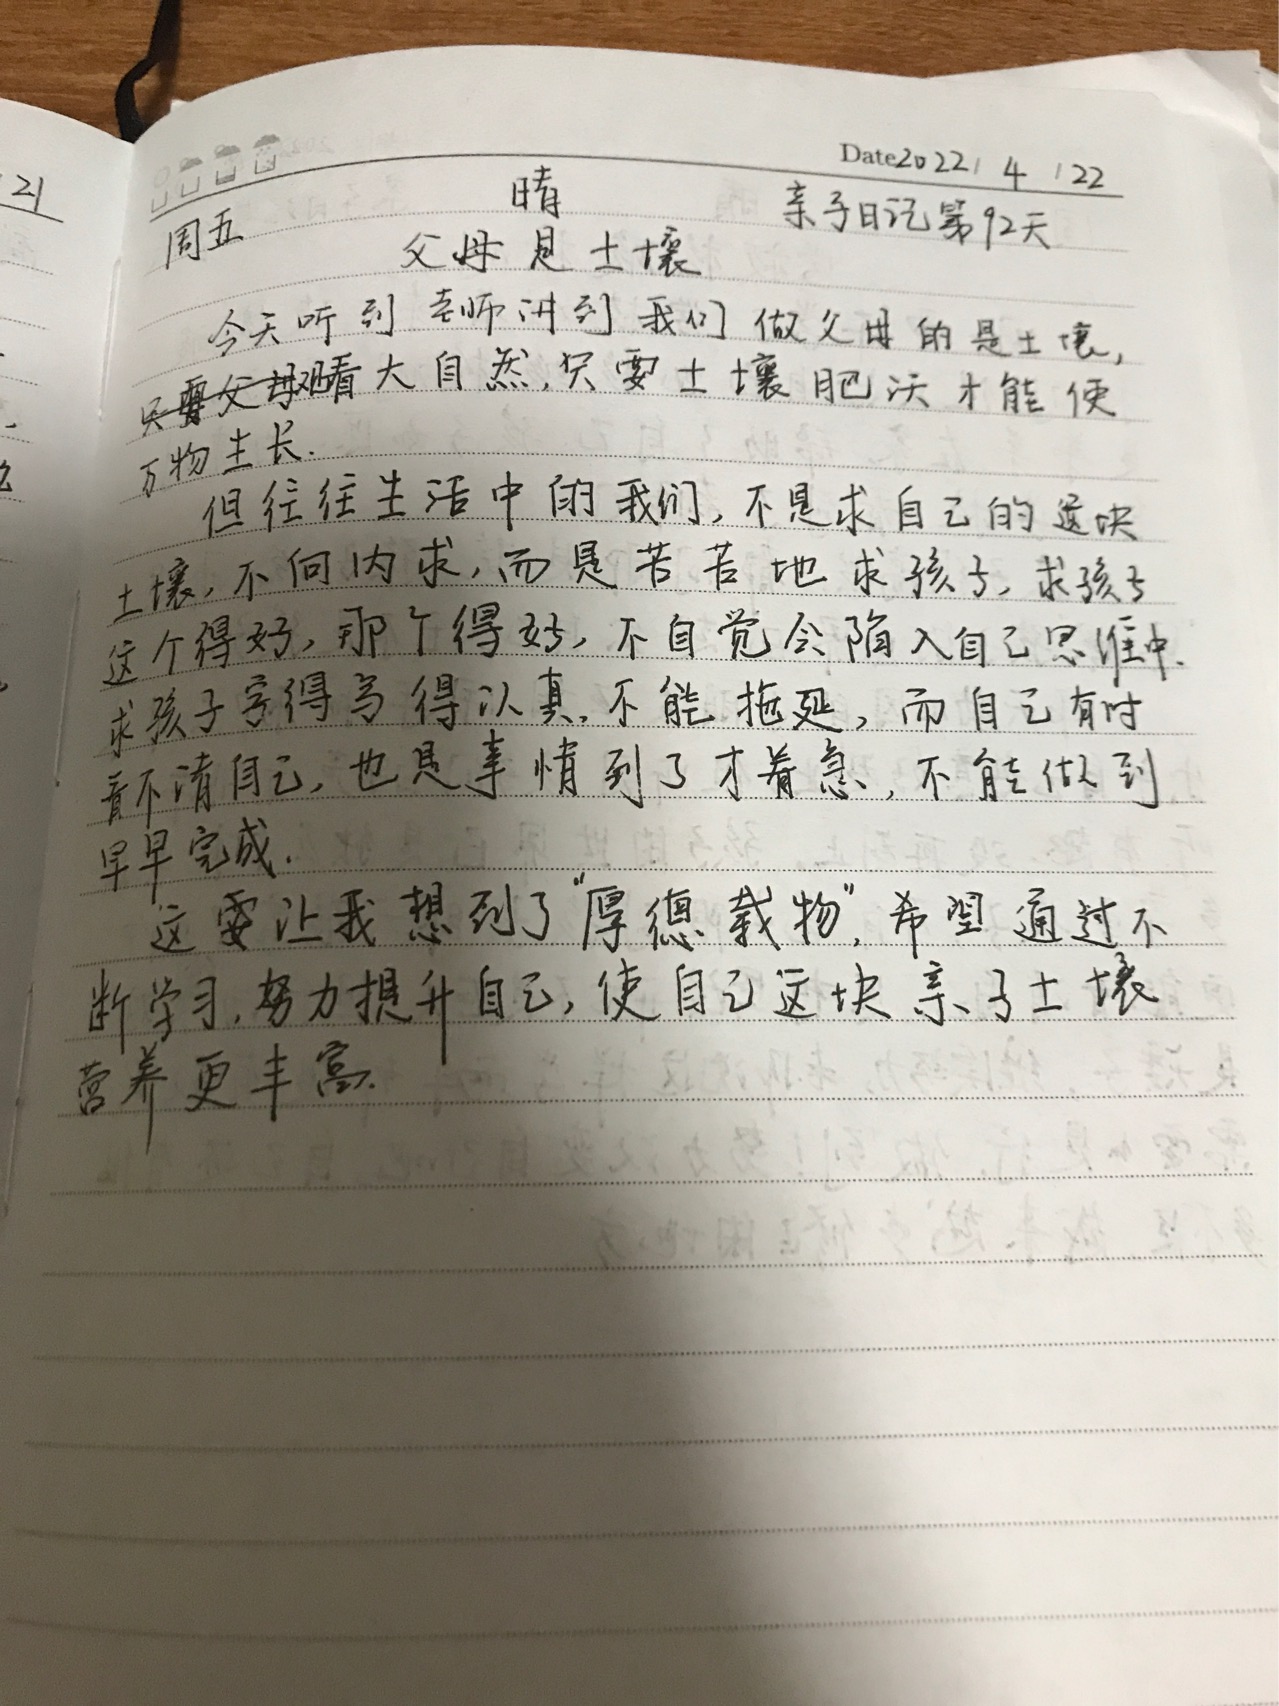 21
Date 2022 / 4 / 22
周五 晴 亲子日记第92天
父母是土壤
今天听到老师讲到我们做父母的是土壤,
只要父母观看大自然,只要土壤肥沃才能使
万物生长.
但往往生活中的我们,不是求自己的这块
土壤,不向内求,而是苦苦地求孩子,求孩子
这个得好,那个得好,不自觉会陷入自己思维中.
求孩子字得写得认真,不能拖延,而自己有时
看不清自己,也是事情到了才着急,不能做到
早早完成.
这要让我想到了"厚德载物",希望通过不
断学习,努力提升自己,使自己这块亲子土壤
营养更丰富.